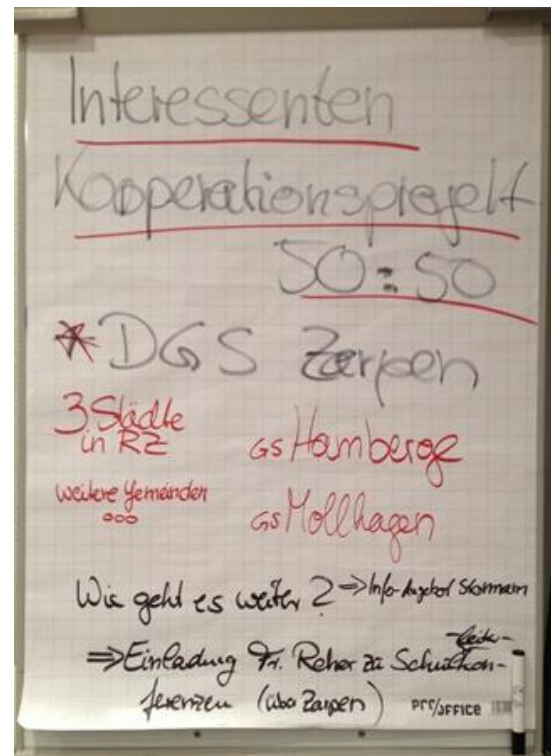 Interessenten
Kooperationsprojekt
50:50
* DGS Zarpen
3 Städte
in RZ
GS Hamberge
weitere Gemeinden
ooo
GS Mollhagen
Wie geht es weiter? => Info-Angebot Stormarn
-leiter-
=> Einladung Fr. Reher zu Schulkon-
ferenzen (über Zarpen)
pro/office